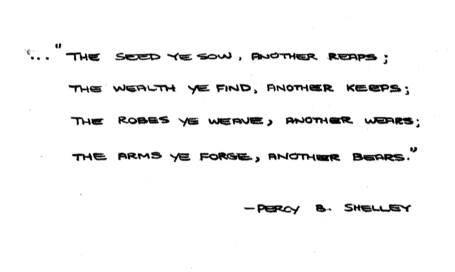 ..."THE SEED YE SOW, ANOTHER REAPS;
THE WEALTH YE FIND, ANOTHER KEEPS;
THE ROBES YE WEAVE, ANOTHER WEARS;
THE ARMS YE FORGE, ANOTHER BEARS."
—PERCY B. SHELLEY